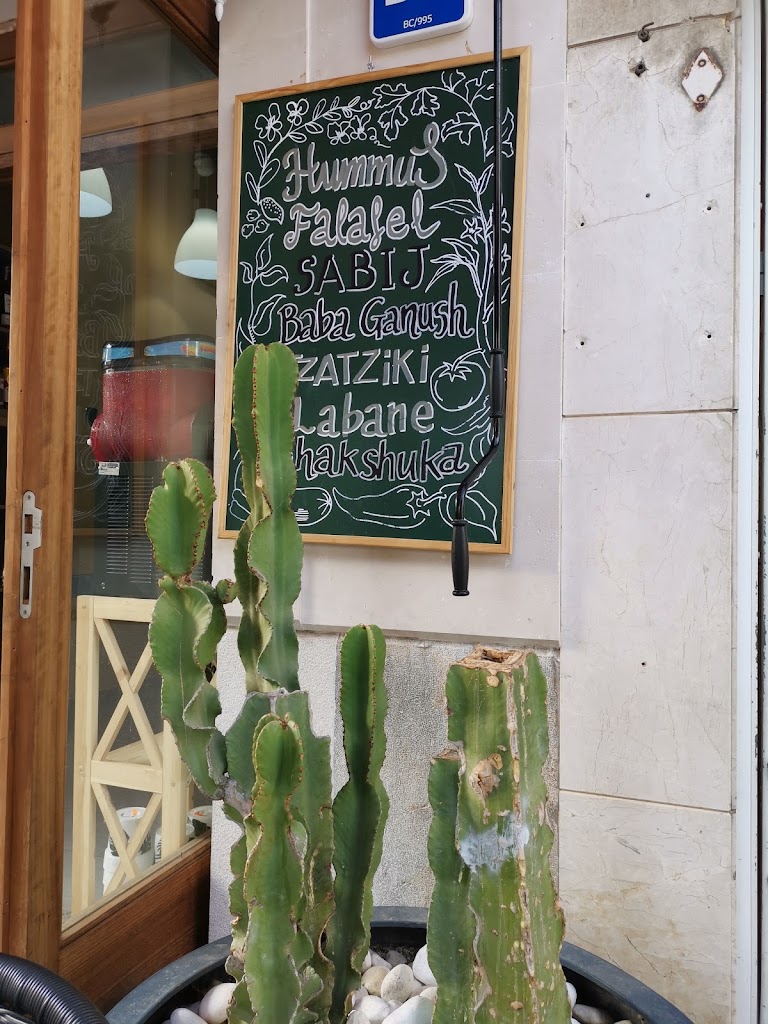 BC/995
Hummus
Falafel
SABIJ
Baba Ganush
ZATZiKi
Labane
hakshuka